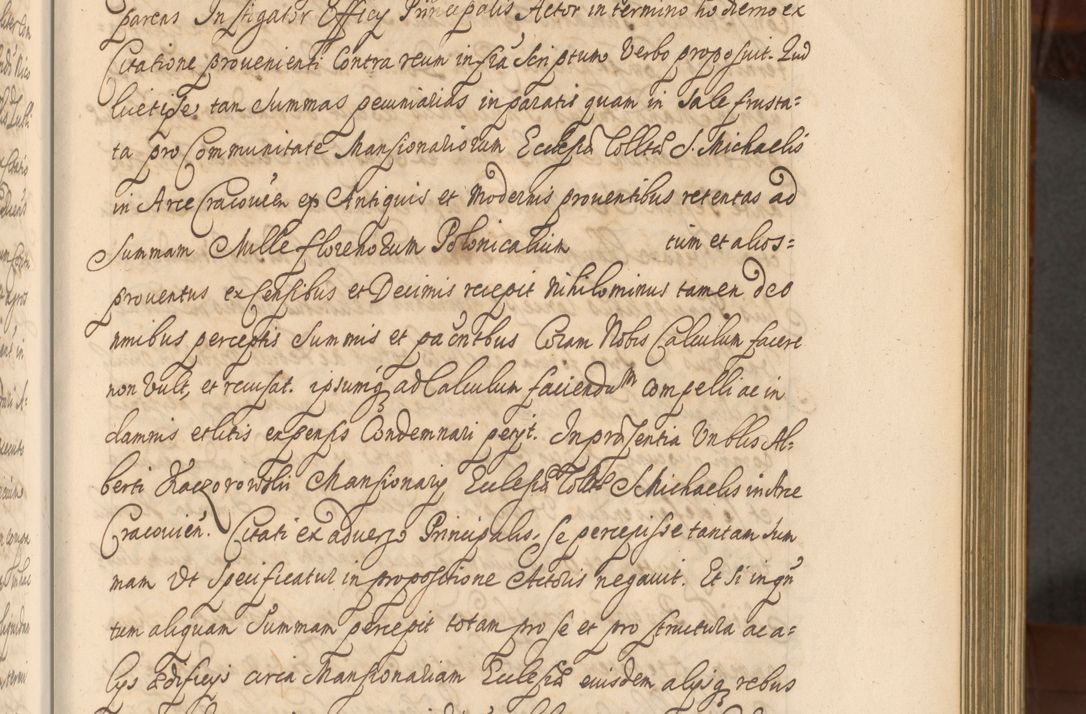 parens Instigator Officÿ Principalis Actor in termino hodierno ex
Citatione prouenienti Contra reum infra scriptum Verbo proposuit. Quod
licet Ipse tam summas pecuniarias in paratis quam in sale frusta=
ta pro Communitate Mansionariorum Ecclesiæ Collttæ S. Michaelis
in Arce Cracouien ex Antiquis et Modernis prouentibus retentas ad
Summam Mille florenorum Polonicalium tum et alios=
prouentus ex Censibus et Decimis recepit Nihilominus tamen de o
mnibus perceptis Summis et Coram Nobis Calculum facere
non Vult, et recusat. ipsumq ad Calculum faciendum compelli ac in
damnis et litis expensis Condemnari petÿt. In præsentia Vnblis Al-
berti Kaczorowskii Mansionarÿ Ecclesiæ Colltæ S Michaelis in Arce
Cracouien. Citati ex aduerso Principalis, se percepisse tantam Sum
mam Vt Specificatur in propositione Actoris negauit. Et Si in qn
tum aliquam Summam percepit totam pro se et pro structura ac a=
lÿs Ædificÿs circa Mansionariam Ecclesiæ eiusdem alÿsq rebus